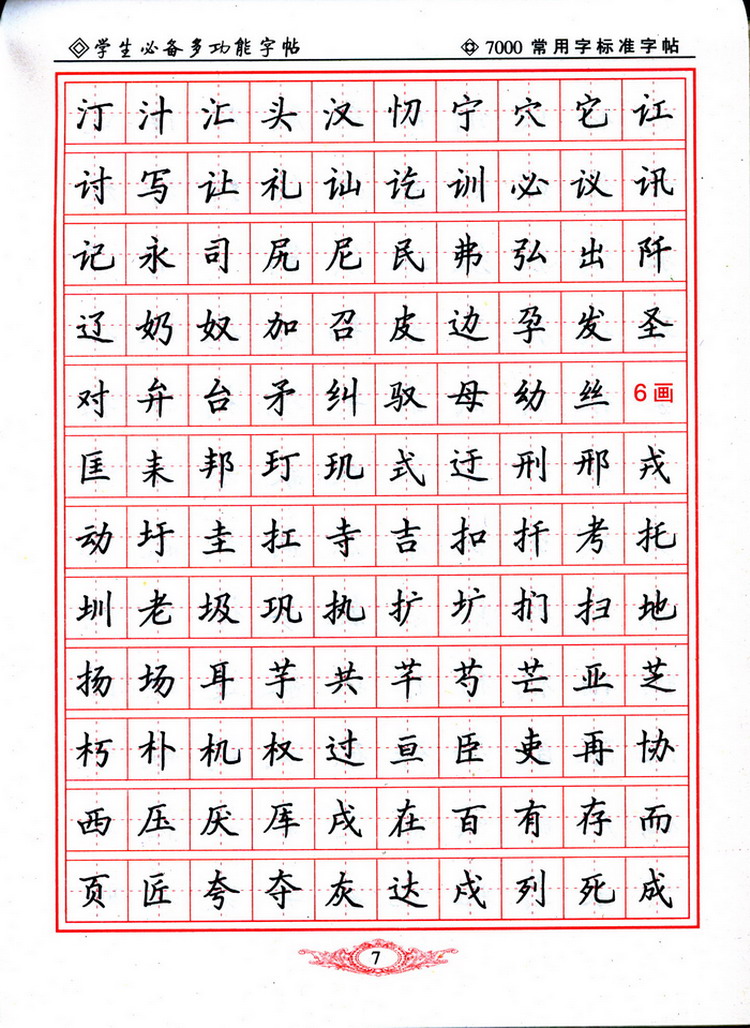 学生必备多功能字帖 7000 常用字标准字帖
汀 汁 汇 头 汉 忉 宁 穴 它 讧
讨 写 让 礼 讪 讫 训 必 议 讯
记 永 司 尻 尼 民 弗 弘 出 阡
辽 奶 奴 加 召 皮 边 孕 发 圣
对 弁 台 矛 纠 驭 母 幼 丝 6画
匡 耒 邦 玎 玑 式 迂 刑 邢 戎
动 圩 圭 扛 寺 吉 扣 扦 考 托
圳 老 圾 巩 执 扩 圹 扪 扫 地
扬 场 耳 芋 共 芊 芍 芒 亚 芝
朽 朴 机 权 过 亘 臣 吏 再 协
西 压 厌 厍 戌 在 百 有 存 而
页 匠 夸 夺 灰 达 戍 列 死 成
7